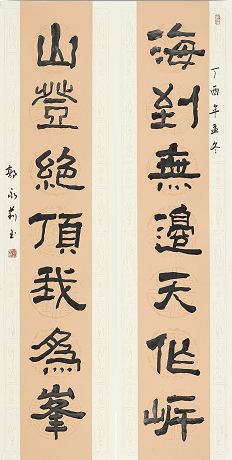 丁酉年孟冬
海到無邊天作岸
山登絕頂我為峯
郭永莉書